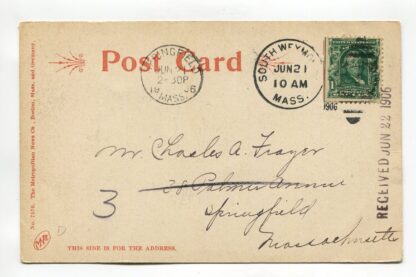 Post Card
SPRINGFIELD
JUN 21
2-30P
MASS.
SOUTH WEYMO
JUN 21
10 AM
MASS.
1906
RECEIVED JUN 22 1906
No. 7476. The Metropolitan News Co., Boston, Mass. and Germany.
Mr. Charles A. Frazer
28 Palmer Avenue
3
Springfield
Massachusetts
D
THIS SIDE IS FOR THE ADDRESS.